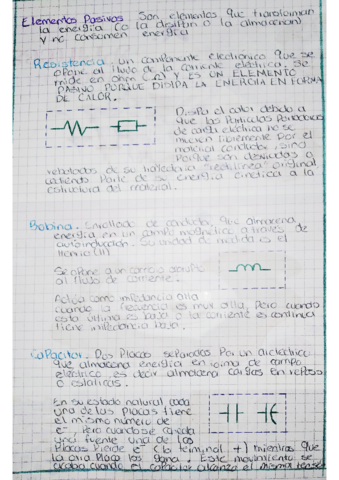 Elementos Pasivos Son elementos que transforman
la energía (o la desiben o la almacenan)
y no consumen energía
Resistencia. Un componente electronico que se
opone al flujo de la corriente eléctrica. Se
mide en Ohm (Ω) Y ES UN ELEMENTO
PASIVO PORQUE DISIPA LA ENERGIA EN FORMA
DE CALOR.
Disipa el calor debido a
que las Particulas Portadoras
de carga eléctrica no se
mueven libremente Por el
material conductor, sino
Porque son desviadas o
rebotadas de su trayectoria rectilínea original
cediendo Parte de su energía cinética a la
estructura del material.
Bobina. Enrollado de conductor que almacena
energía en un campo magnético a través de
autoinducción. Su unidad de medida es el
Henrio (H)
Se opone a un cambio
al flujo de corriente.
Actúa como impedancia alta
cuando la frecuencia es muy alta, Pero cuando
esta última es baja o la corriente es continua
tiene impedancia baja.
Capacitor. Dos Placas separadas Por un dieléctrico
que almacena energía en forma de campo
eléctrico, es decir almacena cargas en reposo
o estáticas.
En su estado natural cada
una de las Placas tiene
el mismo número de
e⁻ Pero cuando se conecta
una fuente una de las
Placas Pierde e⁻ (la terminal +) mientras que
la otra Placa los gana. Este movimiento se
acaba cuando el capacitor alcanza el mismo